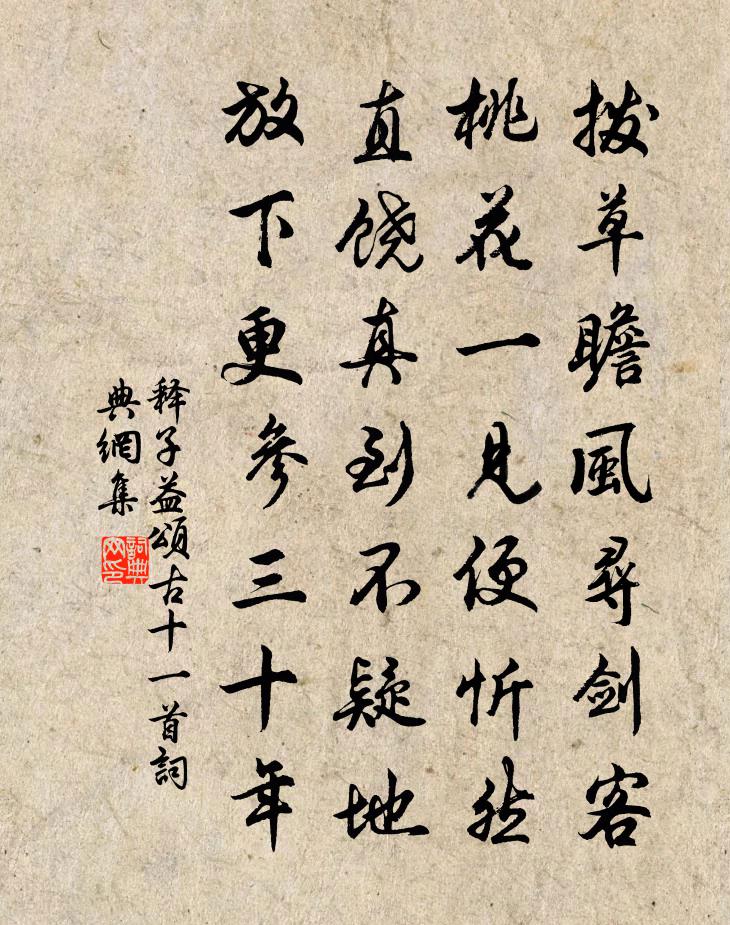 拨草瞻風尋剑客
桃花一見便忻然
直饶真到不疑地
放下更參三十年
释子益頌古十一首詞
典網集
詞典
网印